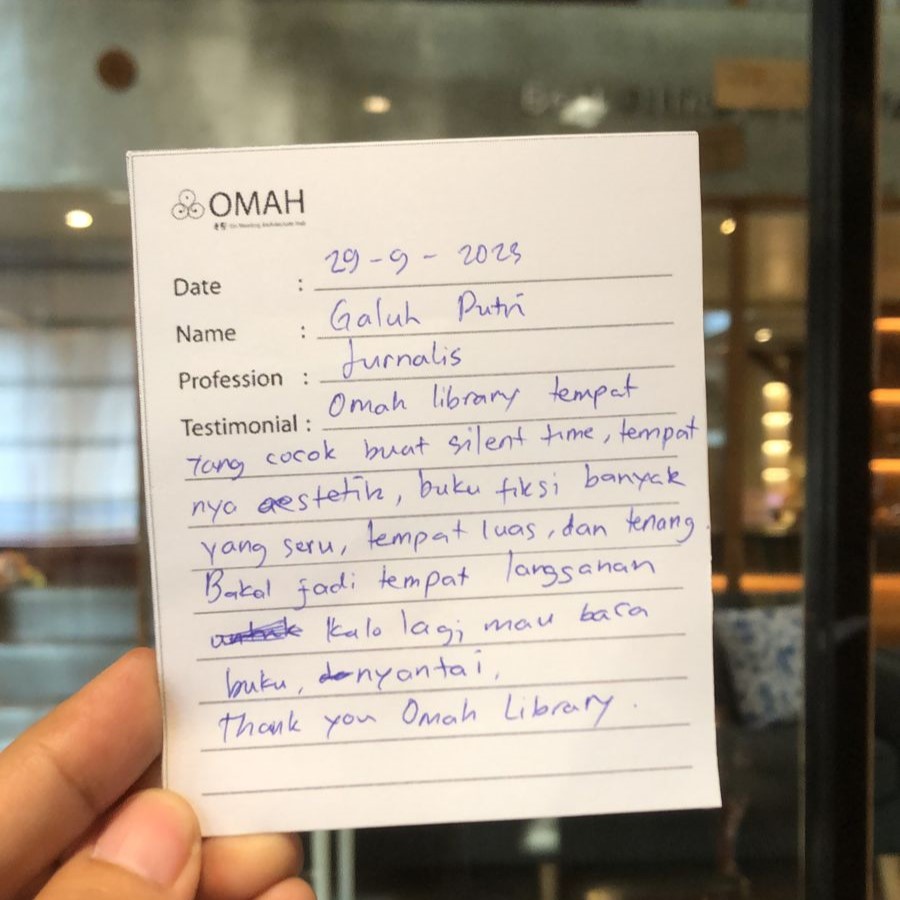 OMAH
29-9-2023
Date :
Galuh Putri
Name :
Jurnalis
Profession :
Omah library tempat
Testimonial :
yang cocok buat silent time, tempat
nya aestetik, buku fiksi banyak
yang seru, tempat luas, dan tenang.
Bakal jadi tempat langganan
kalo lagi mau baca
buku, nyantai,
Thank you Omah Library.